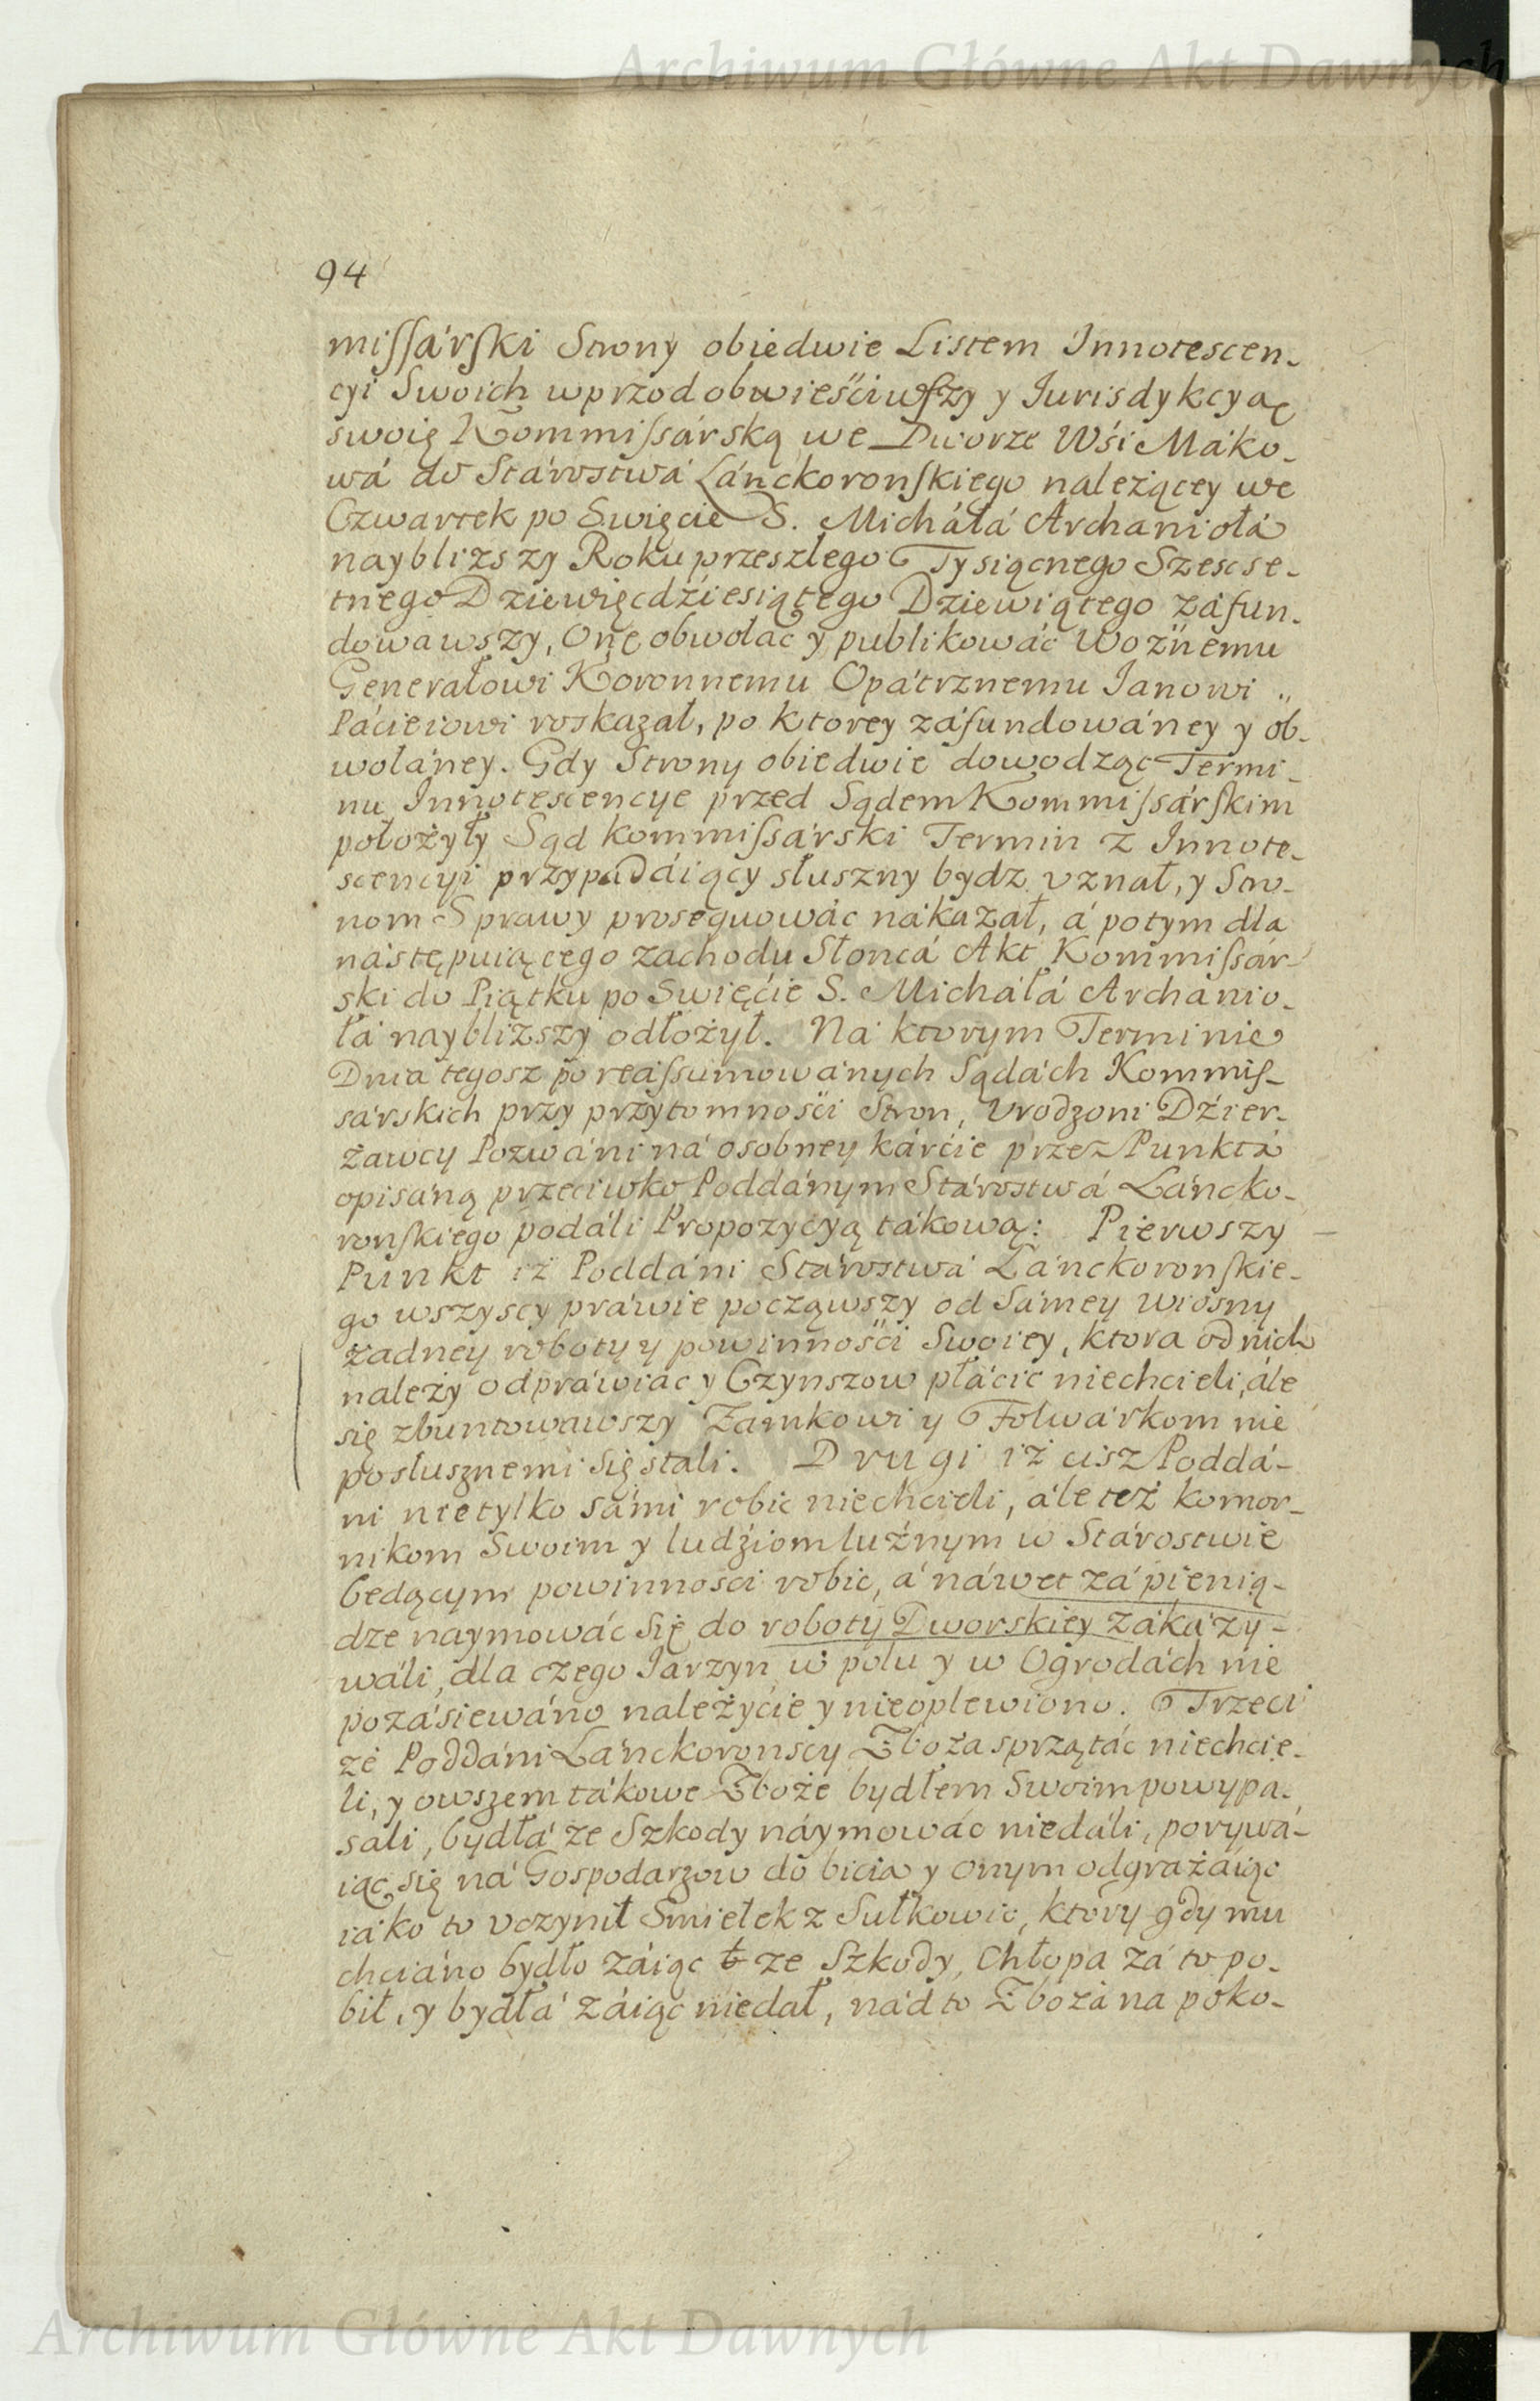 Archiwum Główne Akt Dawnych
94
miſſárſki Strony obiedwie Listem Innotescen-
cyi Swoich wprzod obwieściwſzy y Iurisdykcyą
swoię Kommiſsárską we Dworze Wśi Máko-
wá do Stárostwá Lánckoronſkiego należącey we
Czwartek po Swięcie S. Micháłá Archaniołá
naybliższy Roku przeszłego Tysiącnego Szescse-
tnego Dziewięcdźiesiątego Dziewiątego záfun-
dowawszy, Onę obwołáć y publikowáć Woźnemu
Generałowi Koronnemu Opátrznemu Ianowi „
Pácieiowi roskazał, po ktorey záfundowáney y ob-
wołáney. Gdy Strony obiedwie dowodząc Termi-
nu Innotescencye przed Sądem Kommiſsárſkim
położyły Sąd kommiſsárski Termin z Innote-
scencyi przypadáiący słuszny bydz uznał, y Stro-
nom Sprawy prosequowác nákazał, á potym dla
nástępuiącego zachodu Słoncá Akt Kommiſsár-
ski do Piątku po Swięćie S. Micháłá Archanio-
łá naybliższy odłożył. Ná ktorym Terminie
Dnia tegosz po reáſsumowánych Sądách Kommiſ-
sárskich przy przytomnośći Stron, Vrodzoni Dźier-
żawcy Pozwáni ná osobney kárćie przez Punktá
opisáną przećiwko Poddánym Stárostwá Láncko-
ronſkiego podáli Propozycyą tákową: Pierwszy
Punkt iż Poddáni Stárostwá Lánckoronſkie-
go wszyscy práwie począwszy od Sámey wiosny
żadney roboty y powinnośći Swoiey, ktora od nich
należy odpráwiác y Czynszow płácić niechcieli, ále
się zbuntowawszy Zamkowi y Folwárkom nie
posłusznemi się stali. Drugi iż cisz Poddá-
ni nietylko sámi robic niechcieli, ále też komor-
nikom Swoim y ludźiom luźnym w Stárostwie
będącym powinnosci robic, á náwet zá pienią-
dze naymowác się do roboty Dworskiey zákázy-
wáli, dla czego Iarzyn w polu y w Ogrodách nie
pozásiewáno należyćie y nieoplewiono. Trzeci
że Poddáni Lánckoronscy Zboża sprzątác niechcie-
li, y owszem tákowe Zboże bydłem Swoim powypa-
sáli, bydłá ze Szkody záymowác niedáli, porywá-
iąc się ná Gospodarzow do bicia y onym odgrażáiąc
iáko to uczynił Smiełek z Sułkowic, ktory gdy mu
chciáno bydło záiąc ze Szkody, Chłopa zá to po-
bił, y bydłá záiąc niedał, nádto Zbożá na poko-
Archiwum Główne Akt Dawnych